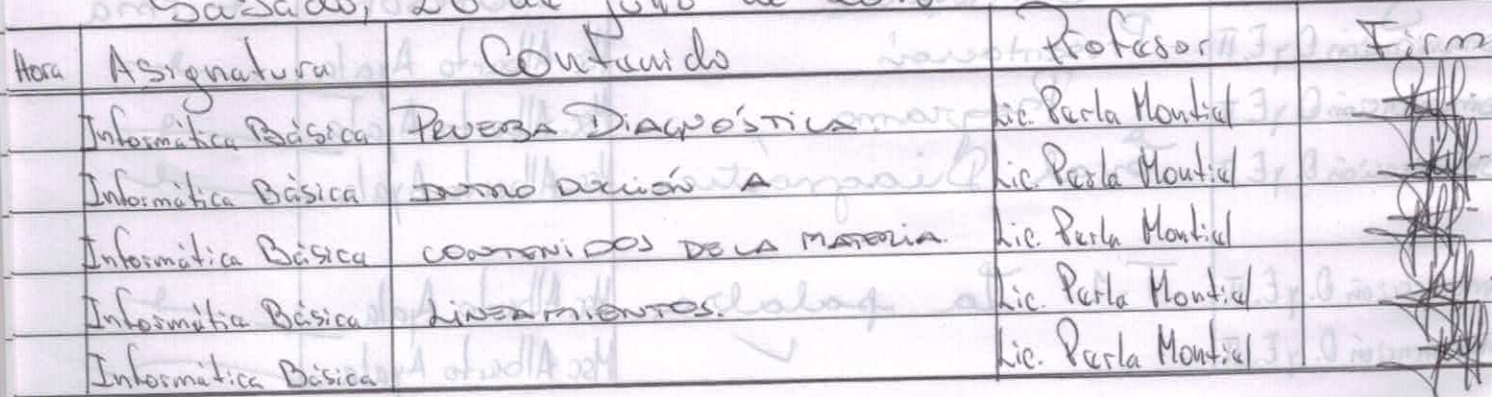 Sábado, 20 de Julio de
Hora Asignatura Contenido Profesor Firm
Informática Básica PRUEBA DIAGNÓSTICA Lic. Perla Montiel
Informática Básica INTRODUCCIÓN A Lic. Perla Montiel
Informática Básica CONTENIDOS DE LA MATERIA. Lic. Perla Montiel
Informática Básica LINEAMIENTOS. Lic. Perla Montiel
Informática Básica Lic. Perla Montiel